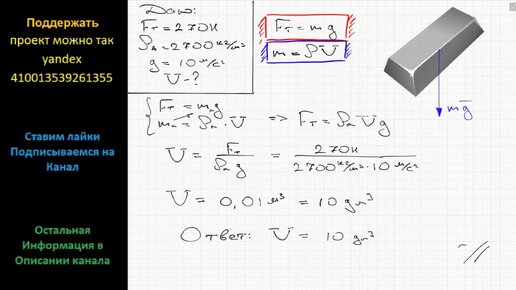 Поддержать
проект можно так
yandex
410013539261355
Ставим лайки
Подписываемся на
Канал
Остальная
Информация в
Описании канала
Дано:
Fт = 270 Н
ρа = 2700 кг/м³
g = 10 м/с²
V - ?
Fт = mg
m = ρV
mg
Fт = mаg
mа = ρа · V => Fт = ρаVg
V = Fт / ρаg = 270 Н / 2700 кг/м³ · 10 м/с²
V = 0,01 м³ = 10 дм³
Ответ: V = 10 дм³